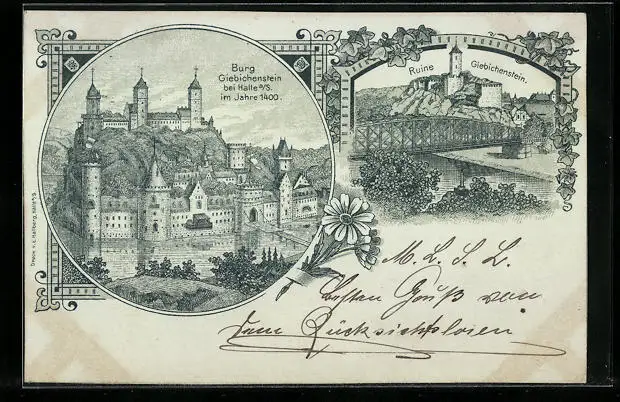 Burg
Giebichenstein
bei Halle a/S.
im Jahre 1400.
Ruine Giebichenstein.
Druck v. E. Hallberg, Halle a/S
M. L. S. L.
Besten Gruß von
Dem Rücksichtslosen